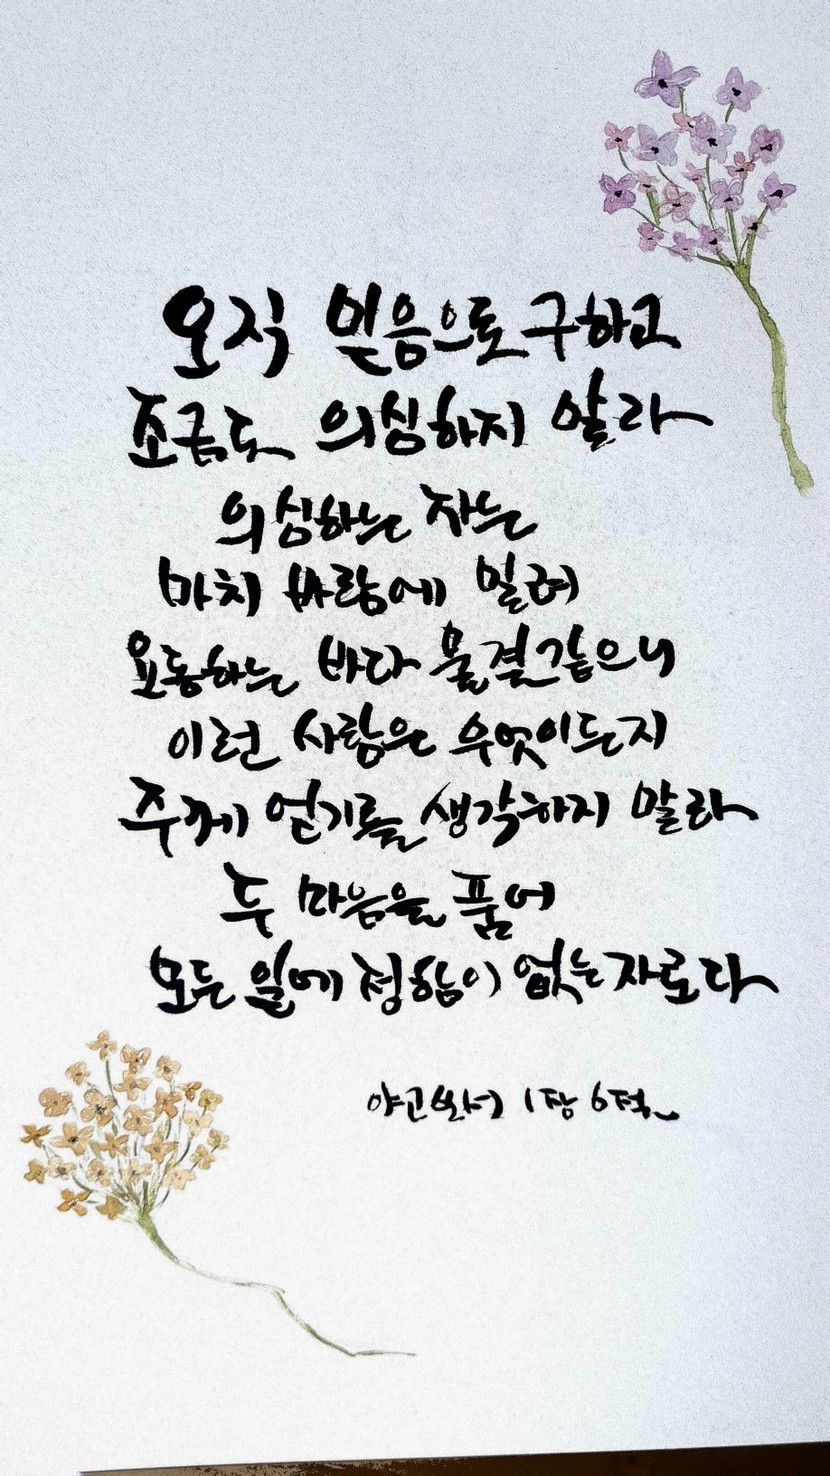 오직 믿음으로 구하고
조금도 의심하지 말라
의심하는 자는
마치 바람에 밀려
요동하는 바다 물결같으니
이런 사람은 무엇이든지
주께 얻기를 생각하지 말라
두 마음을 품어
모든 일에 정함이 없는 자로다
야고보서 1장 6절